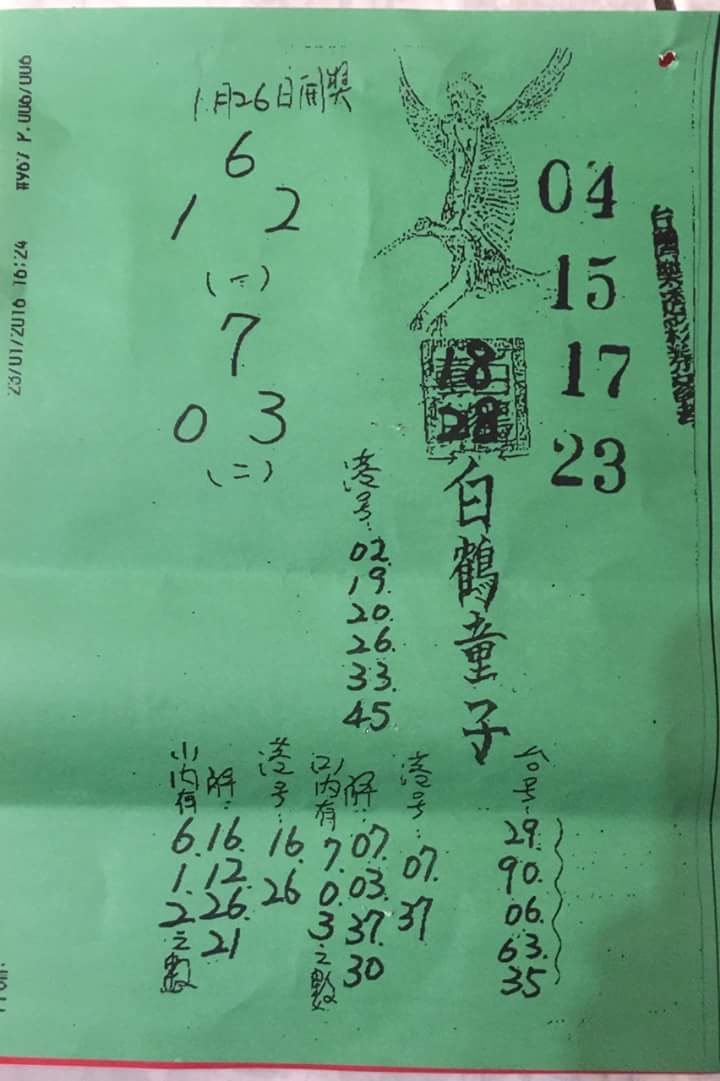 23/01/2016 16:24
1月26日開獎
6
1 2
(一)
7
0 3
(二)
04
15
17
23
18
28
白鶴童子
港号:
02.
19.
20.
26.
33.
45
台号:
29.
90.
06.
63.
35
港号:
07.
37
(二)內有
7.
0.
3
之數
解:
07.
03.
37.
30
港号:
16.
26
(一)內有
6.
1.
2
之數
解:
16.
12.
26.
21